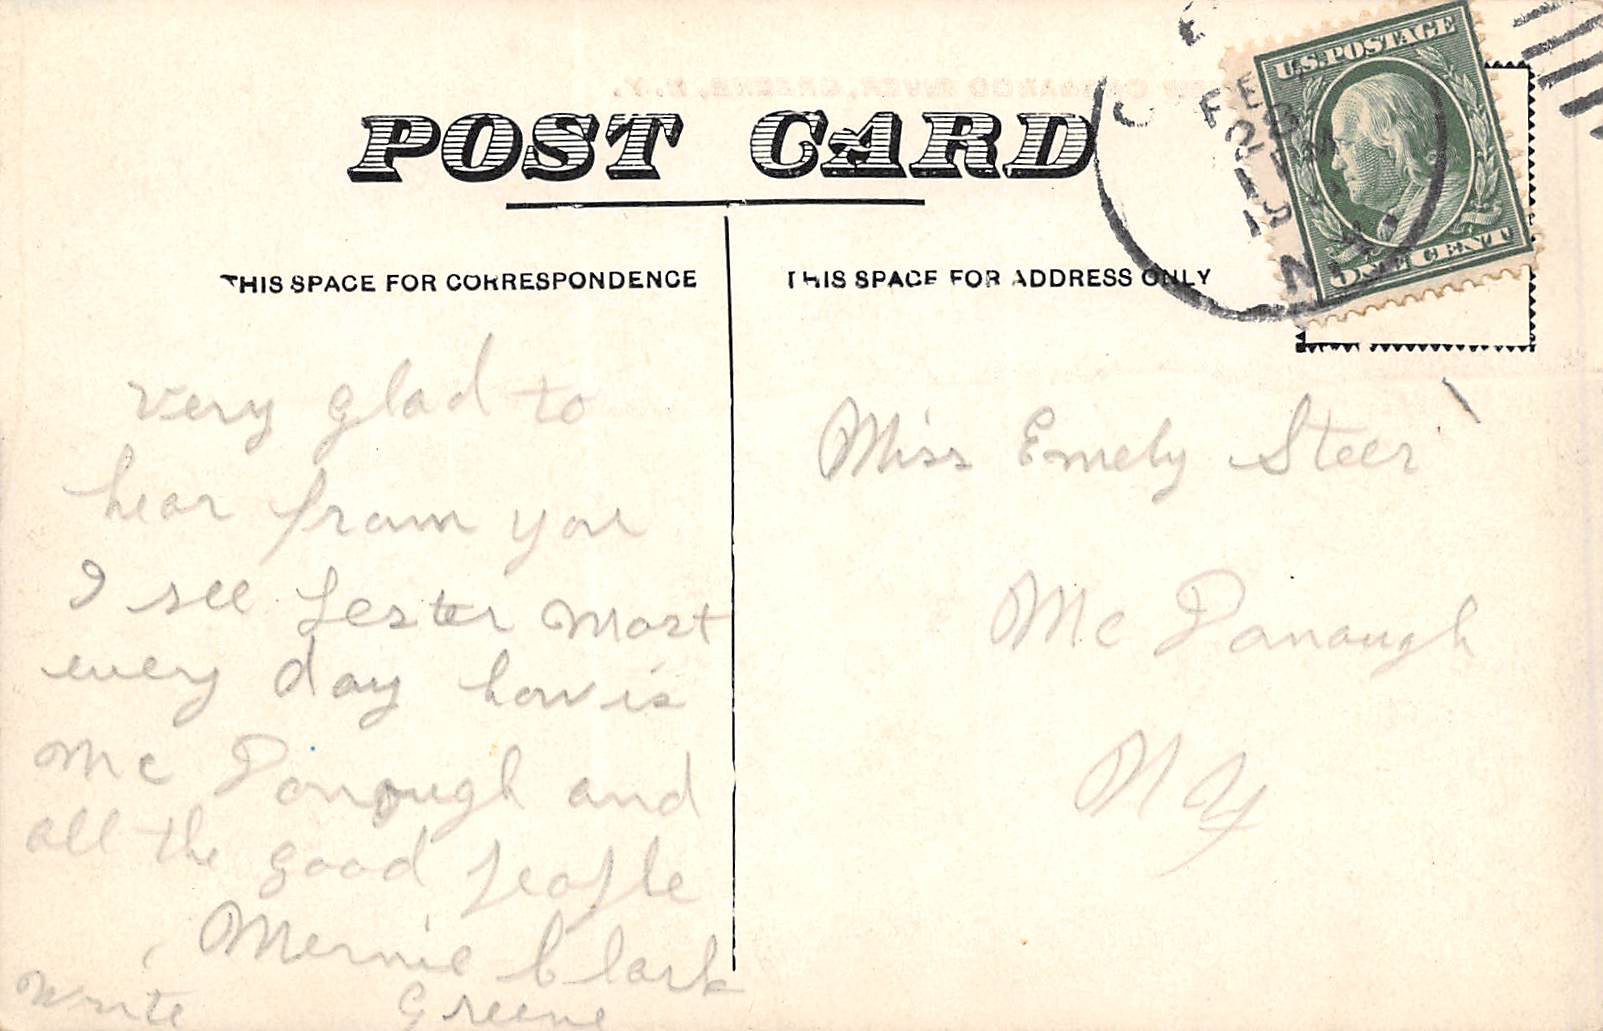 POST CARD
THIS SPACE FOR CORRESPONDENCE
THIS SPACE FOR ADDRESS ONLY
U.S. POSTAGE
ONE CENT
FEB
28
N.Y.
very glad to
hear fram you
I see Lester Most
every day how is
Mc Donough and
all the good people
Mernie Clark
Write Greene
Miss Emely Steer
Mc Donaugh
N Y